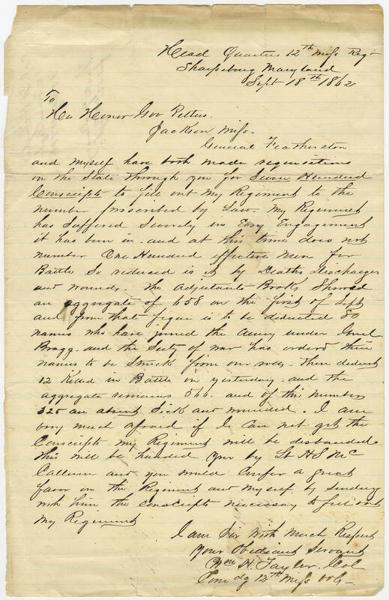 Head Quarters 12th Miss Reg
Sharpsburg Maryland
Sept 18th 1862
To
His Honor Gov Pettus
Jackson Miss.
General Featherston
and myself have both made requisitions
on the State through you for Seven Hundred
Conscripts to fill out my Regiment to the
number prescribed by Law. My Regiment
has suffered severely in Every Engagement
it has been in and at this time does not
number One Hundred effective men for
Battle so reduced is it by Deaths Discharges
and wounds. The Adjutants Books Showed
an aggregate of 658 on the first of Sept
and from that figure is to be deducted 80
names who have joined the Army under Genl
Bragg. and the Secty of war has ordered their
names to be struck from our rolls. then deduct
12 killed in Battle on yesterday. and the
aggregate remains 566. and of this number
325 are absent Sick and wounded. I am
very much afraid if I can not get the
Conscripts my Regiment will be disbanded.
this will be handed you by Lt H S Mc
Callum and you would Confer a great
favor on the Regiment and myself by sending
with him the Conscripts necessary to fill out
my Regiment
I am Sir With Much Respect
Your Obedient Servant
Wm H. Taylor. Col
Comdg 12th Miss Vols